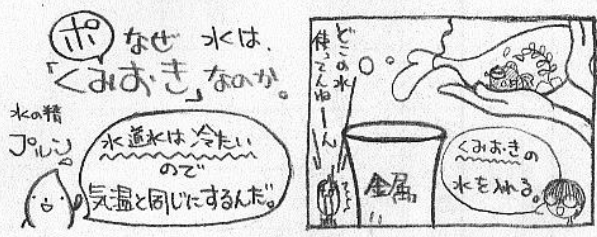 ポ なぜ 水は、
「くみおき」なのか。
水の精
プルン
水道水は冷たい
ので
気温と同じにするんだ。
どこの水
使ってんねーん
金属
くみおきの
水を入れる。